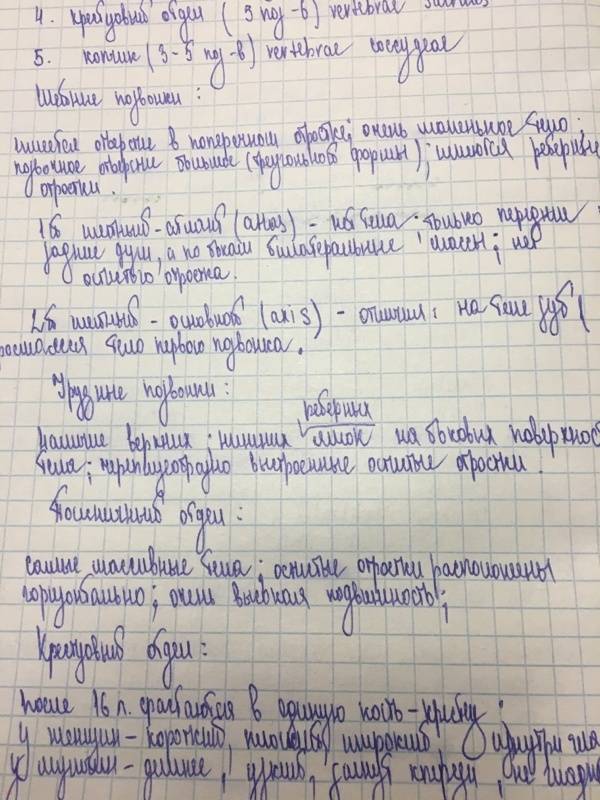 4. крестцовый отдел ( 5 поз-в) vertebrae
5. копчик (3-5 поз-в) vertebrae coccygeae
Шейные позвонки :
имеется отверстие в поперечном отростке; очень маленькое тело ;
позвоночное отверстие большое (треугольной формы) ; имеются реберные
отростки .
1й шейный - атлант (atlas) - нет тела ; только передние
задние дуги, а по бокам массы ; нет
остистого отростка.
2й шейный - осевой (axis) - отличия : на теле зуб (
тело первого позвонка .
Грудные позвонки :
наличие верхних ; нижних реберных ямок на боковых поверхнос
тела ; черепицеобразно выстроенные остистые отростки .
Поясничный отдел :
самые массивные тела ; остистые отростки расположены
горизонтально ; очень высокая подвижность ;
Крестцовый отдел :
после 16 л. срастаются в единую кость -
у женщин - короткий, широкий изнутри
у мужчин - длиннее, узкий, кпереди, не